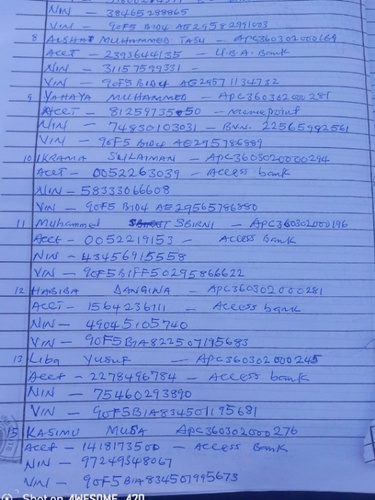 NIN - 38465289865
VIN - 90F5 B1D4 AE2958 2991003
8 AISHAT MUHAMMED TASU - APC360302000169
Acct - 2393644135 - U.B.A. Bank
NIN - 31157599331 -
VIN - 90F5 B1D4 AE29571134732
9 YAHAYA MUHAMMED - APC360302000281
Acct - 8125973550 -
NIN - 74830103031 - BVN. 22565992561
VIN - 90F5 B1D4 AE295786889
10 IKRAMA SULAIMAN - APC360302000294
Acct - 0052263039 - Access bank
NIN - 58333066608
VIN - 90F5 B1D4 AE29565786880
11 Muhammed SBIRNI - APC360302000196
Acct - 0052219153 - Access Bank
NIN - 43456915558
VIN - 90F5B1FF50295866622
12 HABIBA DANGINA - APC360302000281
Acct - 1564236711 - Access bank
NIN - 49045105740
VIN - 90F5B1A822507195683
13 Liba Yusuf - APC360302000245
Acct - 2278496784 - Access bank
NIN - 75460293890
VIN - 90F5B1A834501195681
15 KASIMU MUSA APC360302000276
Acct - 1418173500 - Access Bank
NIN - 97249348067
VIN - 90F5B1A834507995673
Shot on AWESOME A70